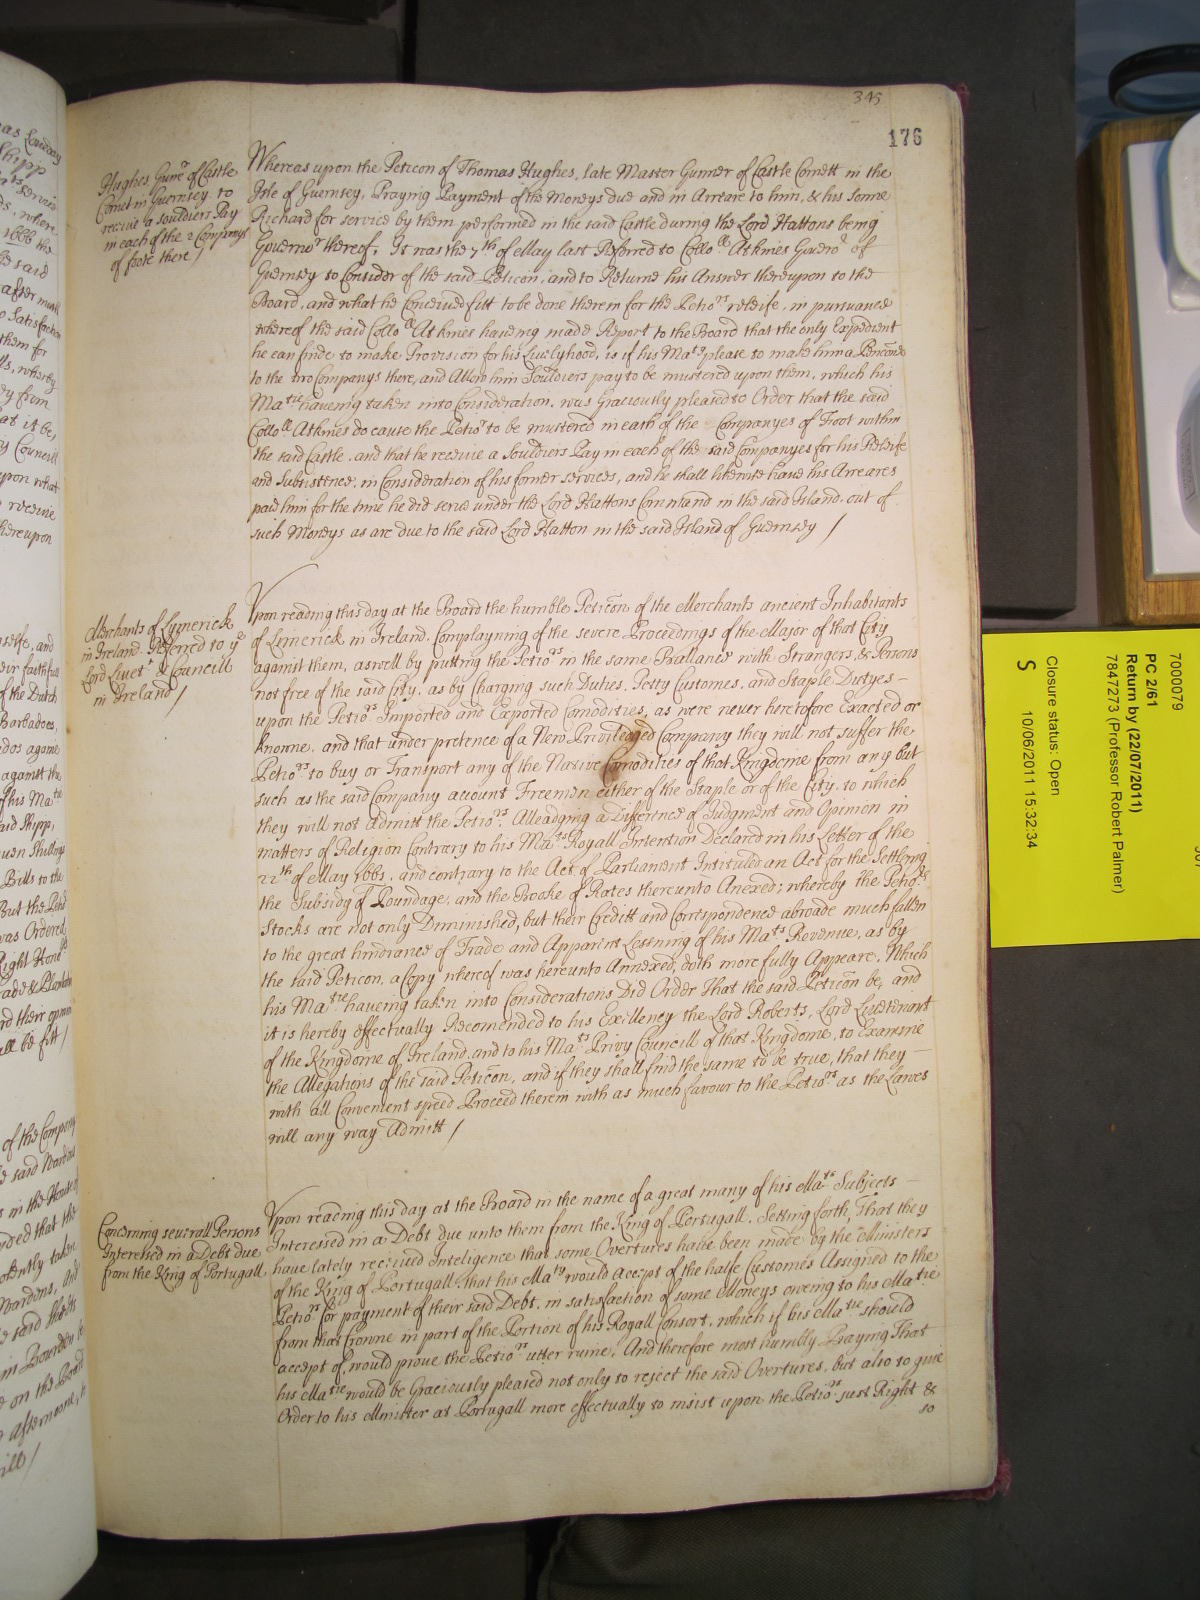 345
176
Hughes Gunr of Castle
Cornet in Guernsey to
receive a souldiers Pay
in each of the 2 Companys
of foote there /
Whereas upon the Peticon of Thomas Hughes, late Master Gunner of Castle Cornett in the
Isle of Guernsey, Praying Payment of the Moneys due and in Arreare to him, & his Sonne
Richard for service by them performed in the said Castle during the Lord Hattons being
Governor thereof, It was the 7th of May last Referred to Collo ll Atkines Guernr of
Guernsey to Consider of the said Peticon, and to Returne his Answer thereupon to the
Board, and what he Conceived fitt to be done therein for the Petiors releife, in pursuance
whereof the said Collo ll Atkines haveing made Report to the Board that the only Expedient
he can finde to make Provision for his Livelyhood, is if his Maty please to make him a Pencõner
to the two Companys there, and Allow him Souldiers pay to be mustered upon them, which his
Matie haveing taken into Consideration, was Graciously pleased to Order that the said
Collo ll Atkines do cause the Petior to be mustered in each of the Companyes of Foot within
the said Castle, and that he receive a Souldiers Pay in each of the said Companyes for his Releife
and Subsistence, in Consideration of his former services, and he shall likewise have his Arreares
paid him for the time he did serve under the Lord Hattons Command in the said Island, out of
such Moneys as are due to the said Lord Hatton in the said Island of Guernsey /
Merchants of Lymerick
in Ireland. Referred to ye
Lord Livet & Councill
in Ireland /
Vpon reading this day at the Board the humble Peticõn of the Merchants ancient Inhabitants
of Limerick in Ireland, Complayning of the severe Proceedings of the Major of that City
against them, aswell by putting the Petiors in the same Ballance with Strangers, & Persons
not free of the said City, as by Charging such Duties, Petty Customes, and Staple Dutyes –
upon the Petiors Imported and Exported Comodities, as were never heretofore Exacted or
knowne, and that under pretence of a New Priviledged Company they will not suffer the
Petiors to buy or Transport any of the Native Comodities of that Kingdome from any but
such as the said Company account Freemen either of the Staple or of the City, to which
they will not Admitt the Petiors, Alleadging a Difference of Judgment and Opinion in
matters of Religion Contrary to his Mats Royall Intention Declared in his Letter of the
22th of May 1661, and contrary to the Act of Parliament Intituled an Act for the Settling
the Subsidy of Poundage, and the Booke of Rates thereunto Anexed; whereby the Petiors
Stocks are not only Diminished, but their Creditt and Correspondence abroade much fallen
to the great hindrance of Trade and Apparent Lessning of his Mats Revenue, as by
the said Peticon, a Copy whereof was hereunto Annexed, doth more fully Appeare, Which
his Matie haveing taken into Considerations Did Order That the said Peticõn be, and
it is hereby effectually Recomended to his Excellency the Lord Roberts, Lord Lieutenant
of the Kingdome of Ireland, and to his Mats Privy Councill of that Kingdome, to Examine
the Allegations of the said Peticõn, and if they shall find the same to be true, that they –
with all Convenient speed Proceed therein with as much favour to the Petiors as the Lawes
will any way Admitt /
Concerning severall Persons
Interessed in a Debt due
from the King of Portugall
Vpon reading this day at the Board in the name of a great many of his Mats Subjects –
Interessed in a Debt due unto them from the King of Portugall, Setting forth, That they
have lately received Inteligence that some Overtures have been made by the Ministers
of the King of Portugall, that his Maty would accept of the halfe Customes Assigned to the
Petiors for payment of their said Debt, in satisfaction of some Moneys oweing to his Matie
from that Crowne in part of the Portion of his Royall Consort, which if his Matie should
accept of, would prove the Petiors utter ruine, And therefore most humbly Praying That
his Matie would be Graciously pleased not only to reject the said Overtures, but also to give
Order to his Minister at Portugall more effectually to insist upon the Petiors just Right &
so
7000079
PC 2/61
Return by (22/07/2011)
7847273 (Professor Robert Palmer)
Closure status: Open
S 10/06/2011 15:32:34